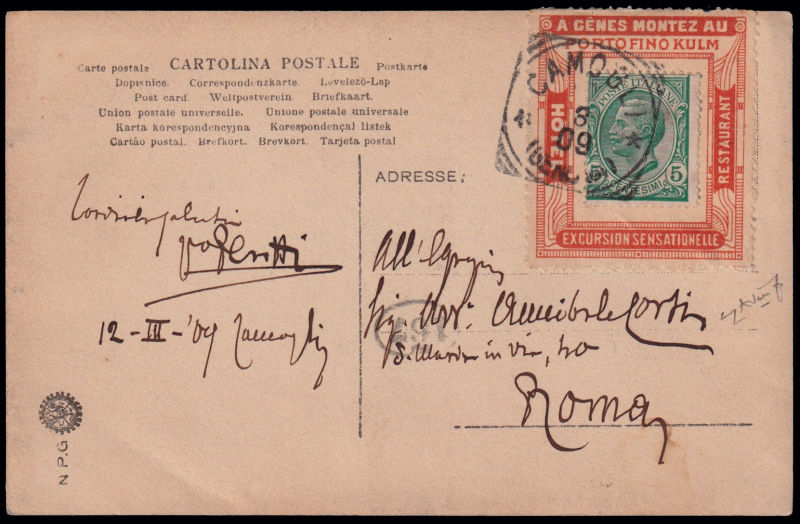 Carte postale CARTOLINA POSTALE Postkarte
Dopisnice. Correspondenzkarte. Levelező-Lap
Post card. Weltpostverein. Briefkaart.
Union postale universelle. Unione postale universale
Karta korespondencyjna Korespondençal listek
Cartão postal. Brefkort. Brevkort. Tarjeta postal
ADRESSE:
A GÊNES MONTEZ AU
PORTOFINO KULM
HOTEL
RESTAURANT
EXCURSION SENSATIONELLE
POSTE ITALIANE
5 CENTESIMI 5
CAMOGLI
3
09
(GENOVA)
12-III-'09 Camogli
All'Egregio
Sig. Avv. Annibale
in Via, 40
Roma
N.P.G